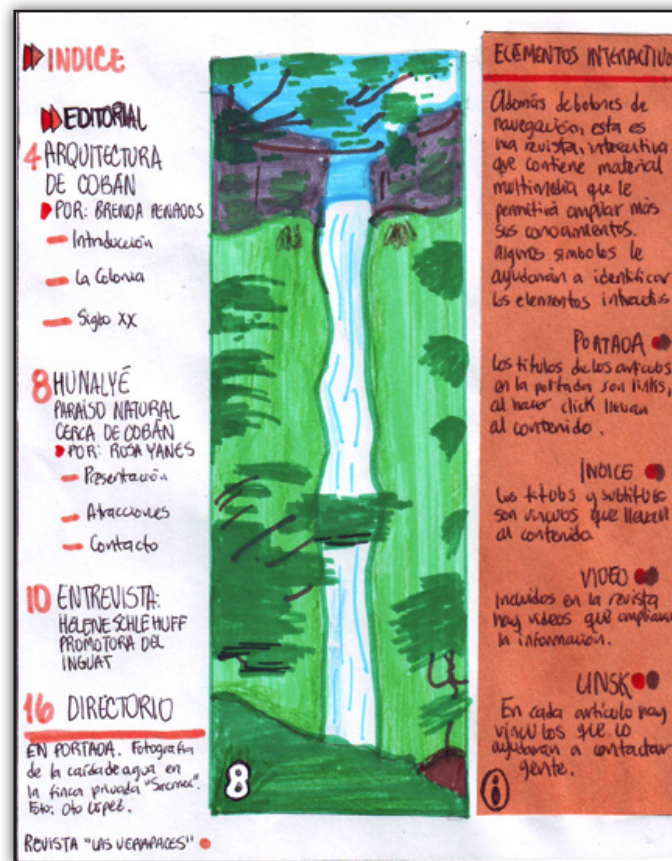 INDICE
EDITORIAL
4 ARQUITECTURA
DE COBÁN
POR: BRENDA PENADOS
Introducción
La Colonia
Siglo XX
8 HUNALYÉ
PARAÍSO NATURAL
CERCA DE COBÁN
POR: ROSA YANES
Presentación
Atracciones
Contacto
10 ENTREVISTA:
HELENE SCHLEHUFF
PROMOTORA DEL
INGUAT
16 DIRECTORIO
EN PORTADA. Fotografía
de la caída de agua en
la finca privada
Foto: Oto López.
REVISTA "LAS VERAPACES"
8
ELEMENTOS INTERACTIVO
Además de botones de
navegación, esta es
una revista, interactiva
que contiene material
multimedia que le
permitirá ampliar más
sus conocimientos.
Algunos símbolos le
ayudarán a identificar
los elementos
PORTADA
Los títulos de los artículos
en la portada son links,
al hacer click llevan
al contenido.
ÍNDICE
Los títulos y subtítulos
son vínculos que llevan
al contenido
VIDEO
Incluidos en la revista
hay videos que
la información.
En cada artículo hay
vínculos que lo
ayudaran a contactar
gente.